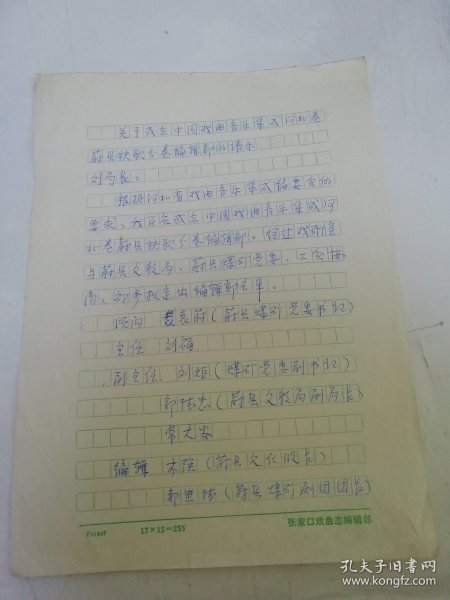 关于成立中国戏曲音乐集成河北卷
蔚县秧歌分卷编辑部的请示
刘局长：
根据河北省戏曲音乐集成编委会的
要求，我区应成立中国戏曲音乐集成河
北卷蔚县秧歌分卷编辑部。经过戏研室
与蔚县文教局、蔚县煤矿党委、工会协
商，初步拟定出编辑部名单。
顾问 袁蔚（蔚县煤矿党委书记）
主任 刘福
副主任 刘旭（煤矿党委副书记）
郭桂杰（蔚县文教局副局长）
常大发
编辑 宋强（蔚县文化股长）
郭进栋（蔚县煤矿剧团团长）
F01947 17×15=255 张家口戏曲志编辑部
孔夫子旧书网
www.kongfz.com